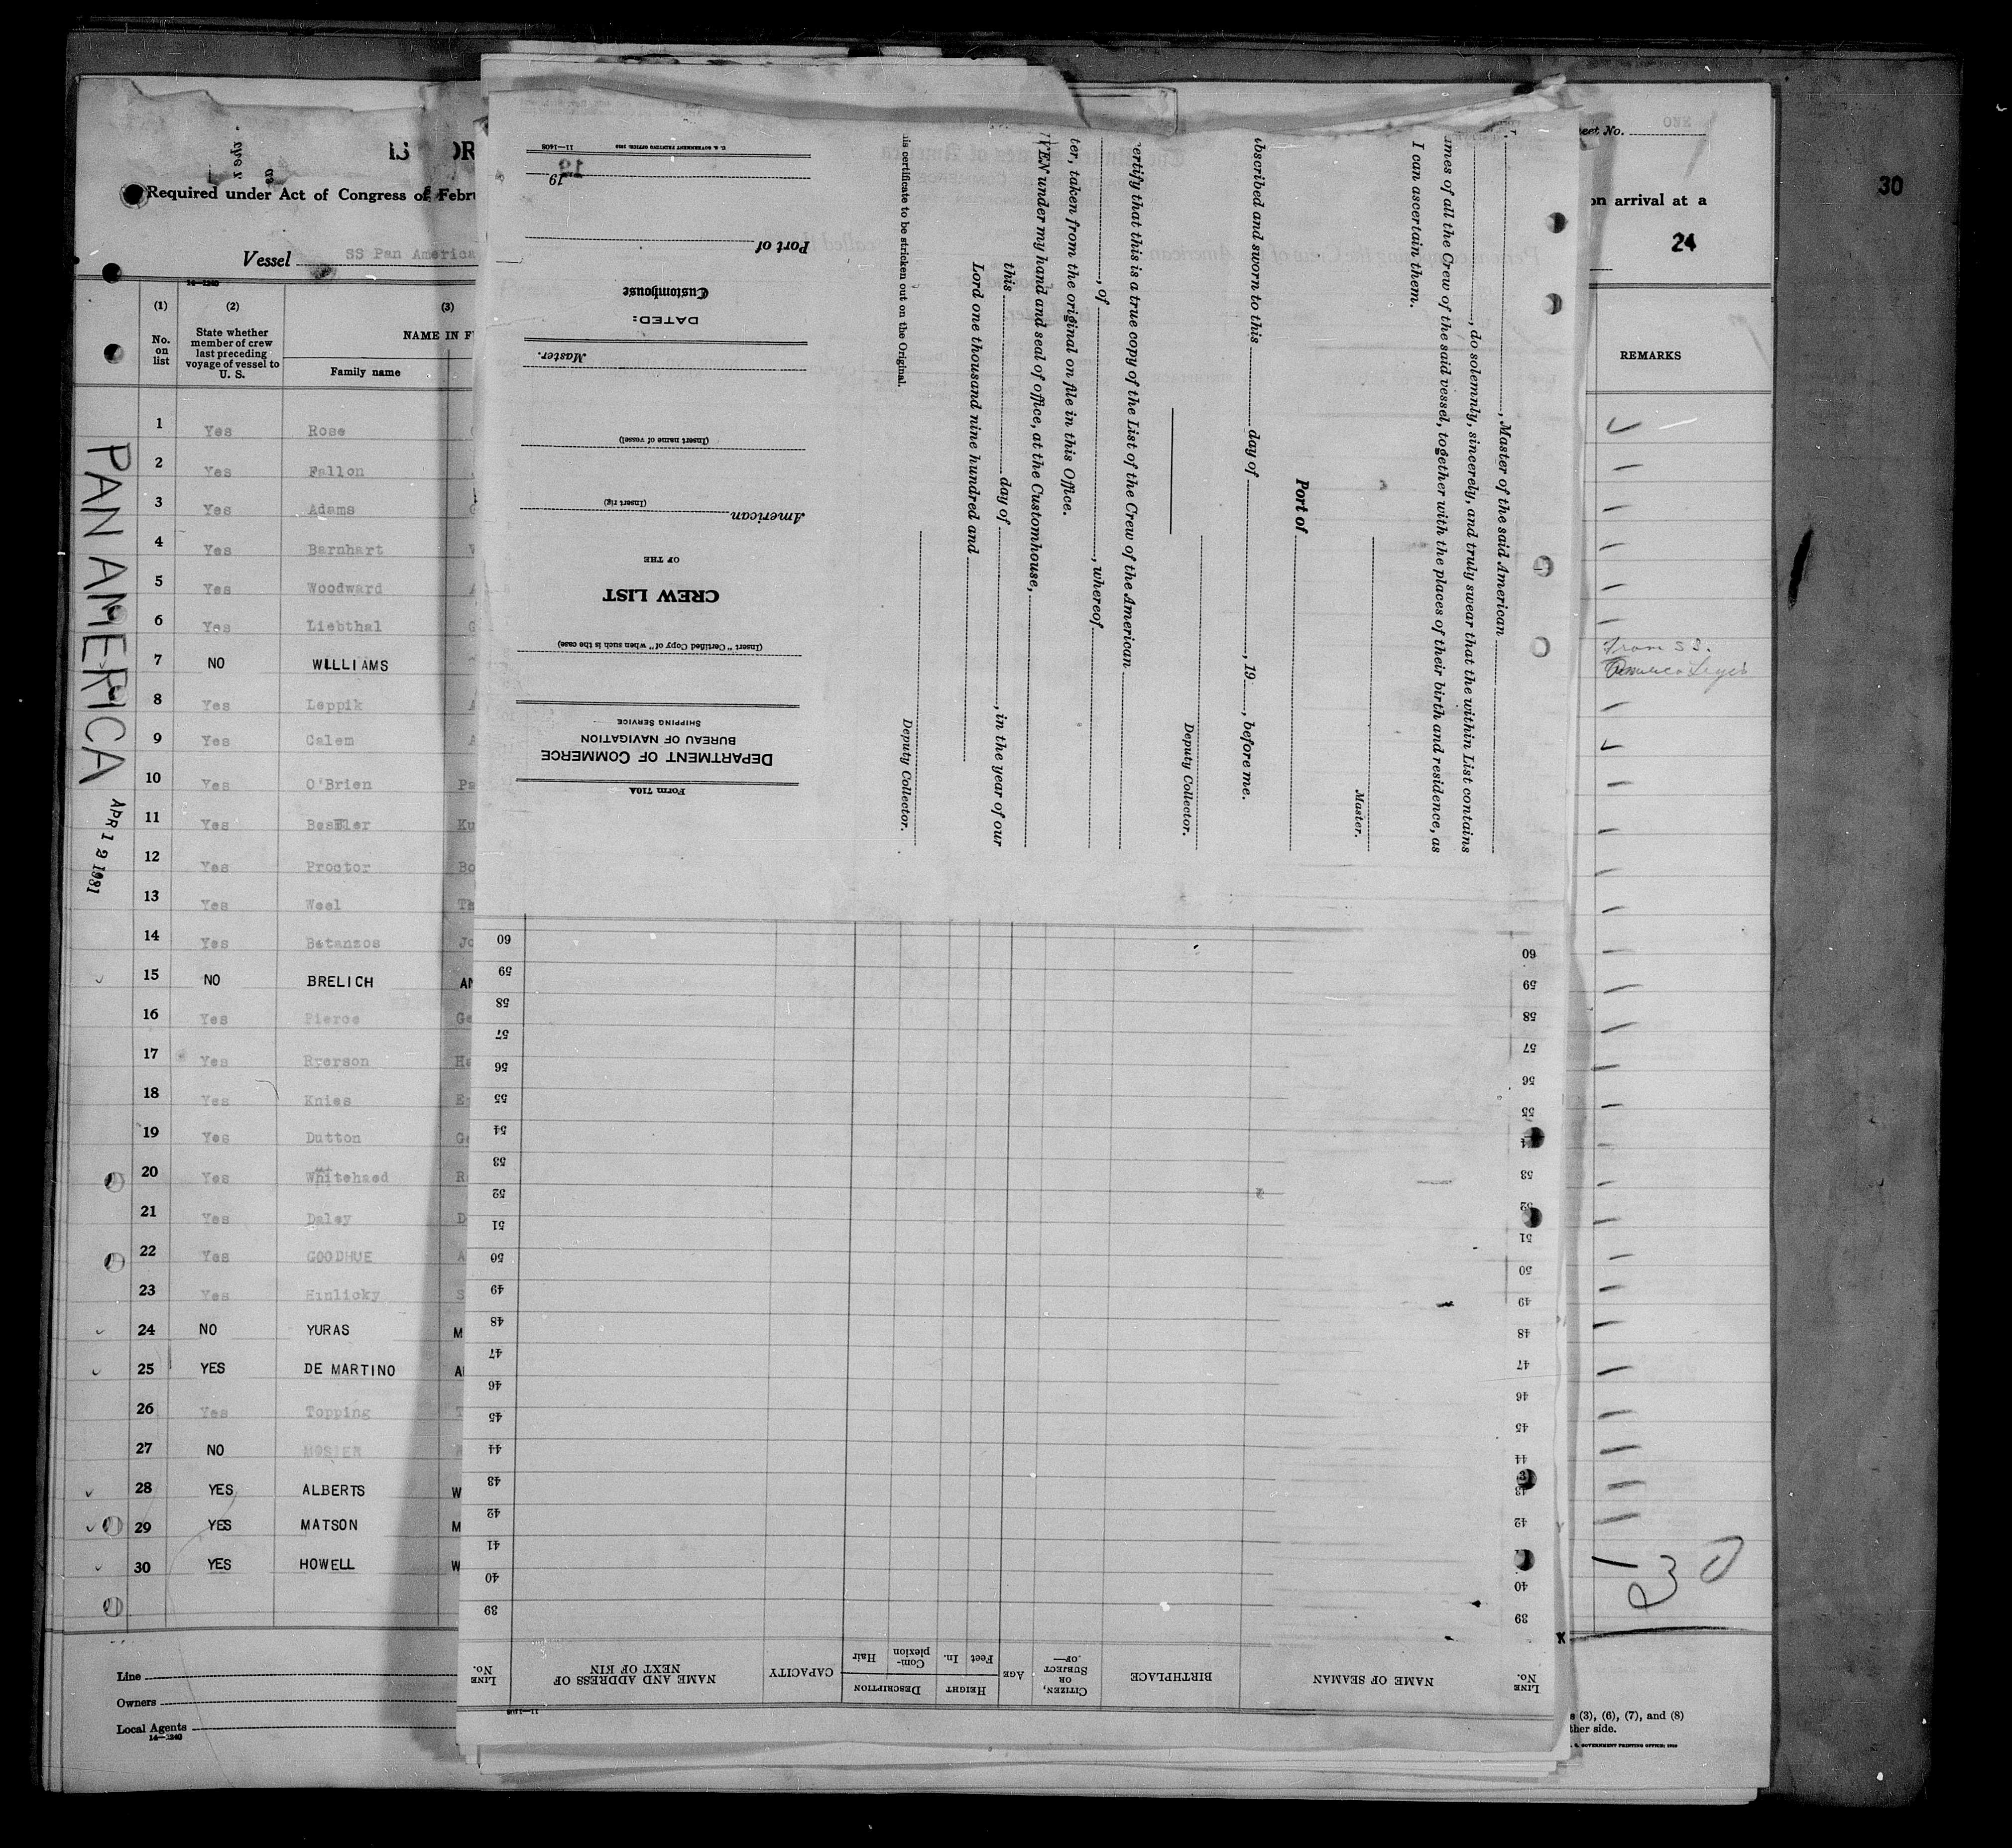 Required under Act of Congress of Febru
Vessel SS Pan America
14—1240
(1) (2) (3)
No. on list
State whether member of crew last preceding voyage of vessel to U. S.
NAME IN F
Family name
1 Yes Rose
2 Yes Fallon
3 Yes Adams
4 Yes Barnhart
5 Yes Woodward
6 Yes Liebthal
7 NO WILLIAMS
8 Yes Leppik
9 Yes Calem
10 Yes O'Brien
11 Yes
12 Yes Proctor Bo
13 Yes Weel
14 Yes Betanzos Jo
15 NO BRELICH AN
16 Yes Pierce Ge
17 Yes Ryerson He
18 Yes Knies
19 Yes Dutton Ge
20 Yes
21 Yes Daley D
22 Yes GOODHUE A
23 Yes Hinlicky S
24 NO YURAS M
25 YES DE MARTINO
26 Yes Topping
27 NO MOSIER
28 YES ALBERTS W
29 YES MATSON M
30 YES HOWELL W
Line
Owners
Local Agents
14—1240
PAN AMERICA
APR 12 1931
Form 710A
DEPARTMENT OF COMMERCE
BUREAU OF NAVIGATION
SHIPPING SERVICE
(Insert "Certified Copy of" when such is the case)
CREW LIST
OF THE
American
(Insert rig)
(Insert name of vessel)
Master.
DATED:
Customhouse
Port of
19
U. S. GOVERNMENT PRINTING OFFICE
11—1408
, Master of the said American
, do solemnly, sincerely, and truly swear that the within List contains
ames of all the Crew of the said vessel, together with the places of their birth and residence, as
I can ascertain them.
Master.
Port of
bscribed and sworn to this day of , 19 , before me.
Deputy Collector.
ertify that this is a true copy of the List of the Crew of the American
, of , whereof
ter, taken from the original on file in this Office.
VEN under my hand and seal of office, at the Customhouse,
this day of , in the year of our
Lord one thousand nine hundred and
Deputy Collector.
is certificate to be stricken out on the Original.
LINE No.
NAME OF SEAMAN
BIRTHPLACE
CITIZEN, OR SUBJECT OF—
AGE
HEIGHT
Feet In.
DESCRIPTION
Complexion Hair
CAPACITY
NAME AND ADDRESS OF NEXT OF KIN
LINE No.
39 39
40 40
41
42 42
43 43
44 44
45 45
46 46
47 47
48 48
49 49
50 50
51 51
52 52
53 53
54
55 55
56 56
57 57
58 58
59 59
60 60
eet No. ONE
on arrival at a
24
REMARKS
From SS.
30
s (3), (6), (7), and (8)
ther side.
S. GOVERNMENT PRINTING OFFICE
30